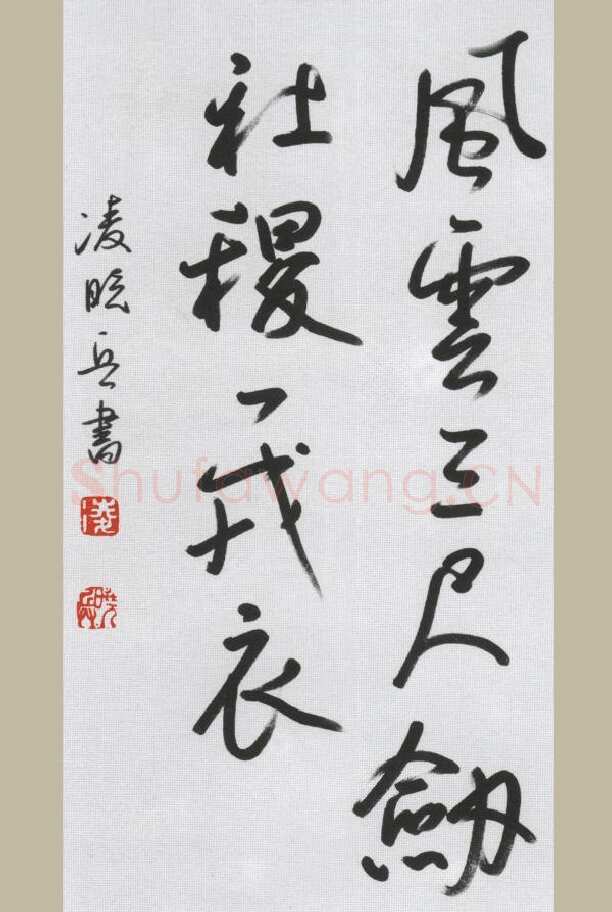 風雲三尺劔
社稷一戎衣
凌晓兵書
Shufawang.CN